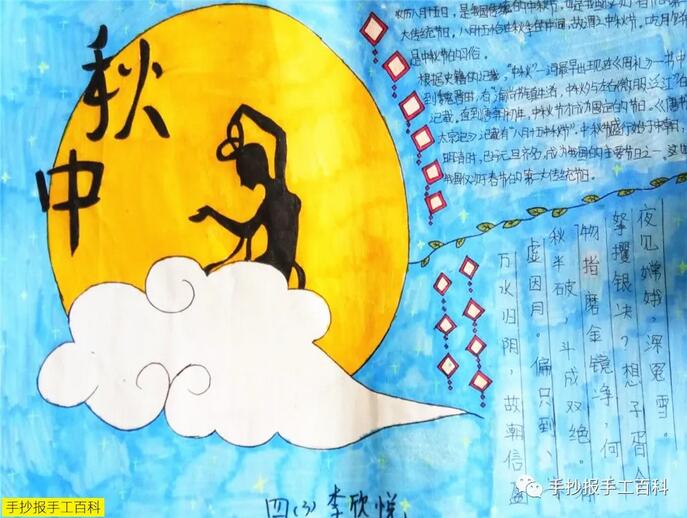 秋
中
农历八月十五日，是我国传统的中秋节，
大传统节日。八月十五恰在秋季的中间，故谓之中秋节。
是中秋节的习俗。
根据史籍的记载，“中秋”一词最早出现在《周礼》一书中
记载。直到唐朝初年，中秋节才成为固定的节日。《唐书
太宗记》记载有“八月十五中秋节”。中秋节盛行始于宋朝，
明清时，已与元旦齐名，成为我国的主要节日之一。这也
我国仅次于春节的第二大传统节日。
夜见嫦娥，深冤雪。
拏攫银决？想子胥
物指磨金镜净，何
秋半破，斗成双绝。
虚因月。偏只到、
万水归阴，故潮信
四(3)李欣悦
手抄报手工百科
手抄报手工百科